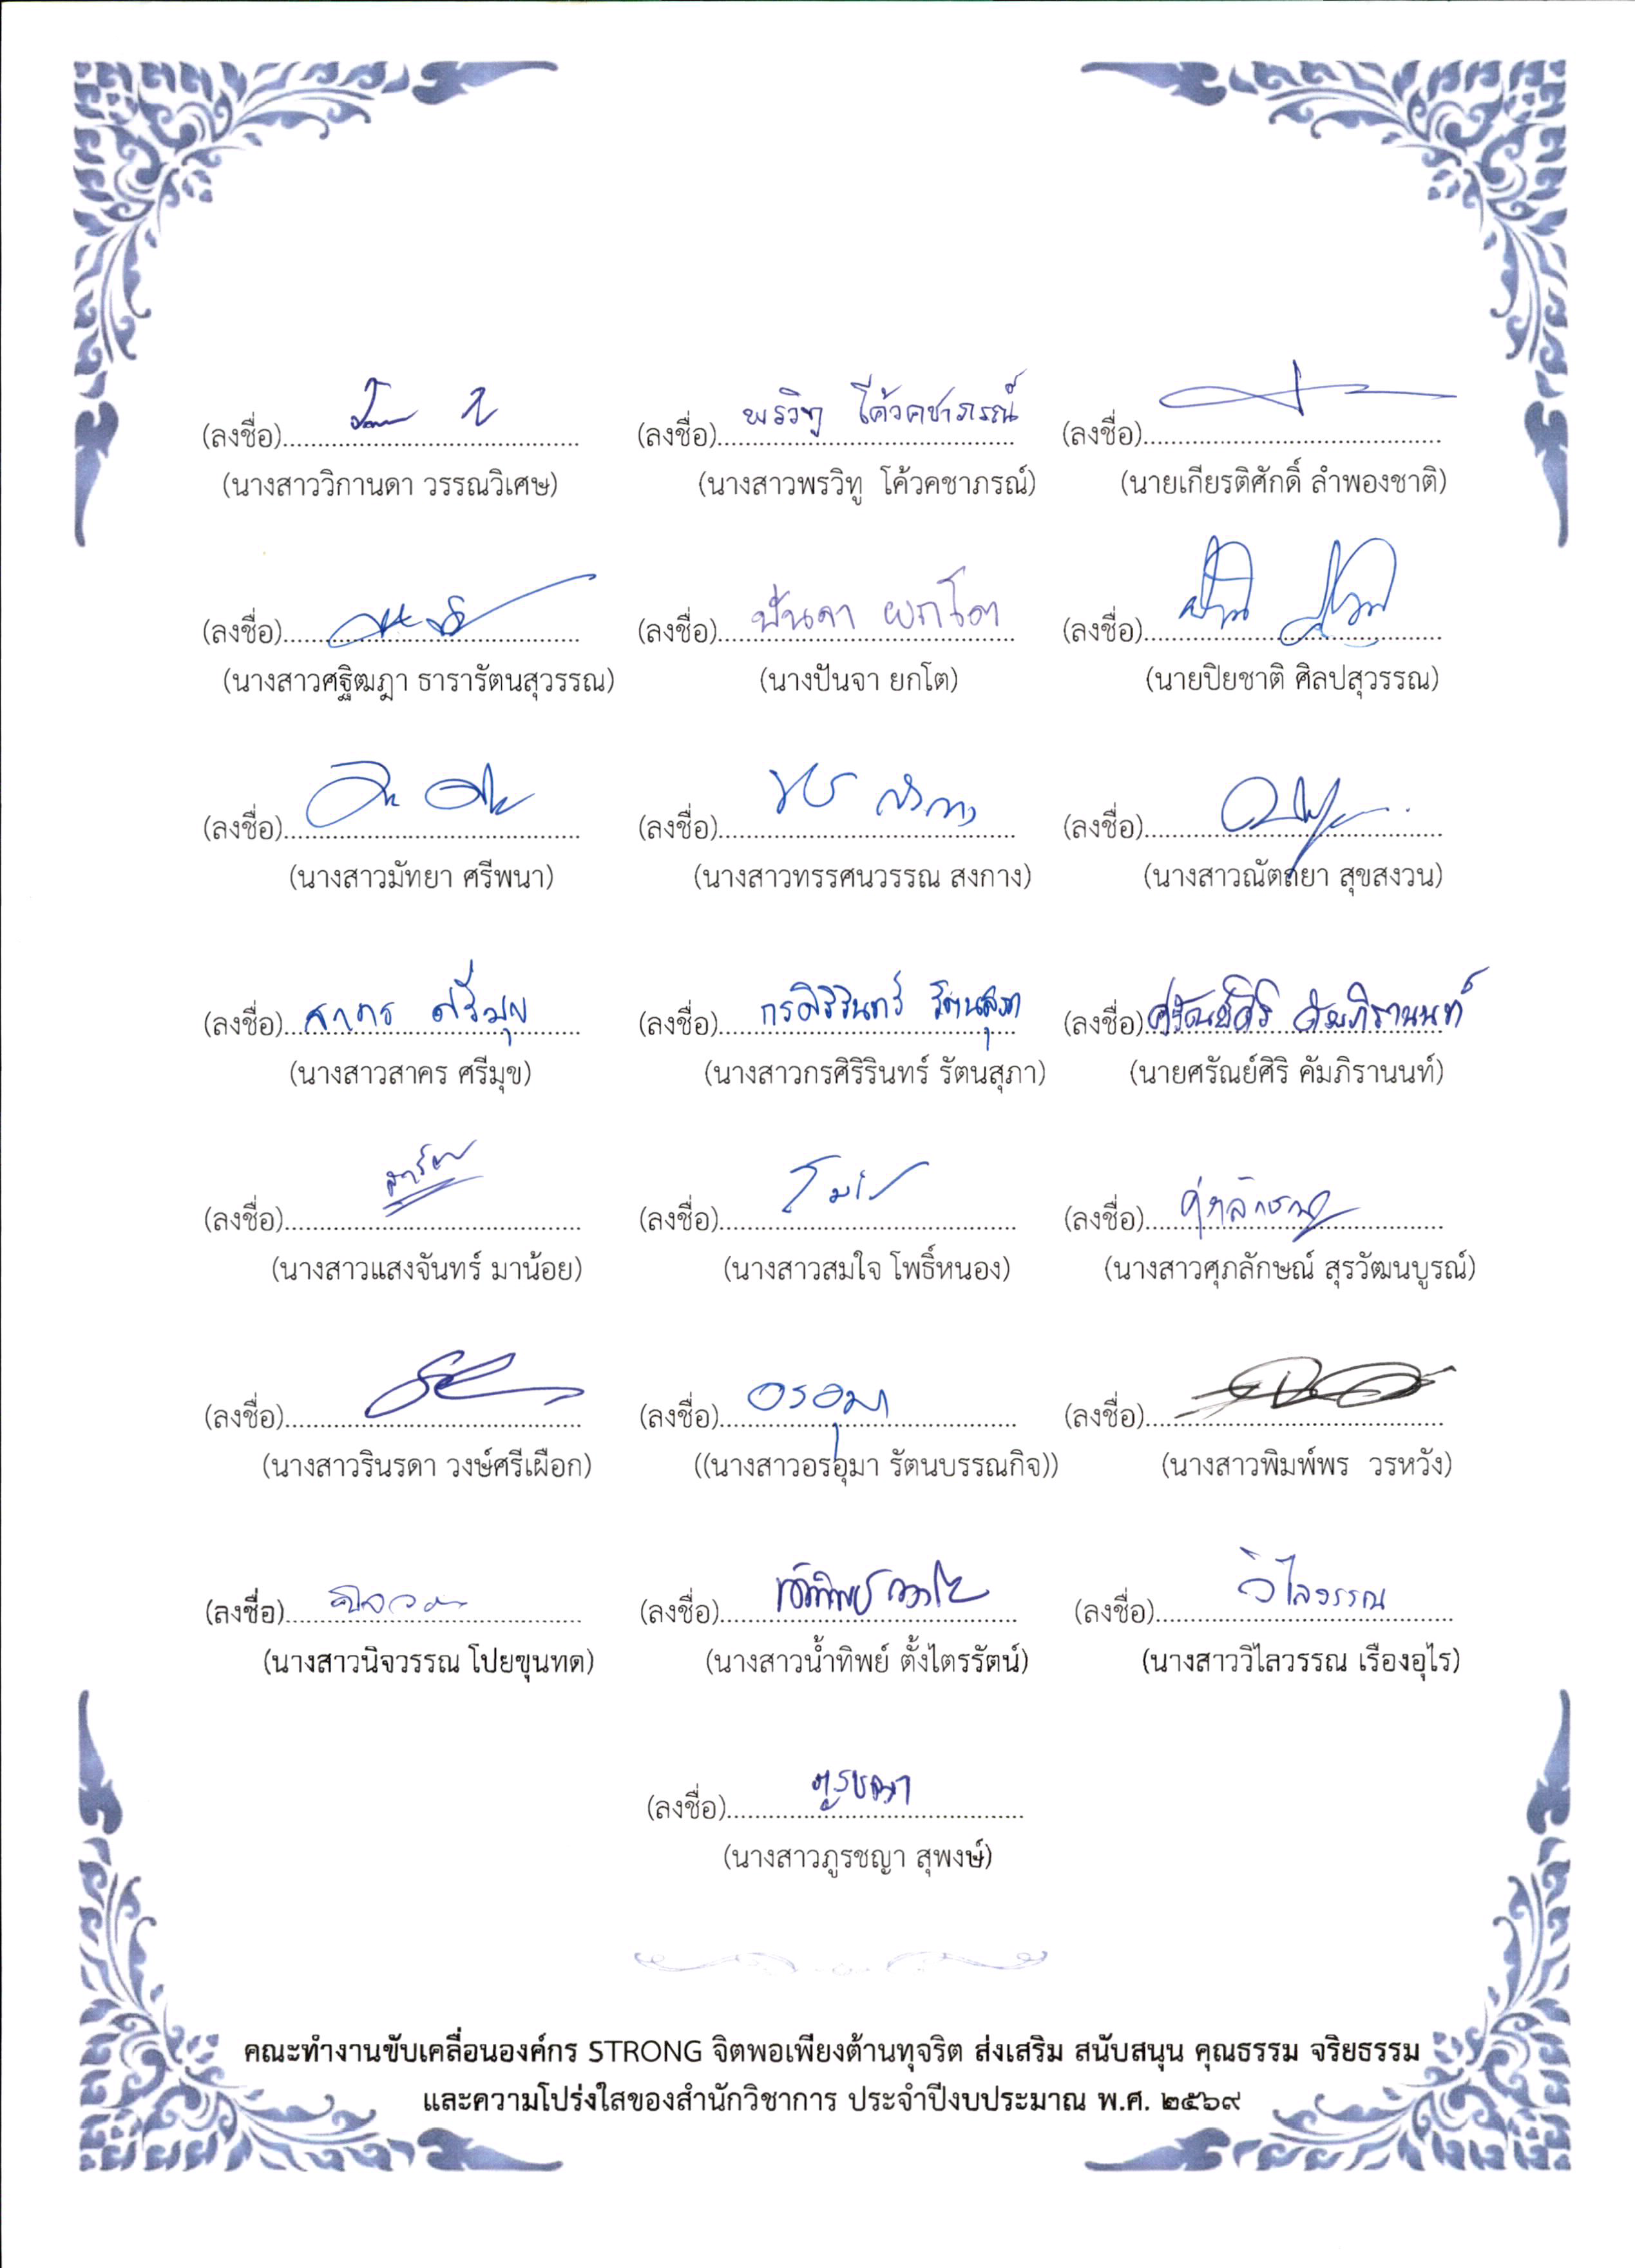 พรวิทู โค้วคชาภรณ์
(ลงชื่อ)........................................ (ลงชื่อ)........................................ (ลงชื่อ)........................................
(นางสาววิกานดา วรรณวิเศษ) (นางสาวพรวิทู โค้วคชาภรณ์) (นายเกียรติศักดิ์ ลำพองชาติ)
ปันจา ยกโต
(ลงชื่อ)........................................ (ลงชื่อ)........................................ (ลงชื่อ)........................................
(นางสาวศฐิฒฎา ธารารัตนสุวรรณ) (นางปันจา ยกโต) (นายปิยชาติ ศิลปสุวรรณ)
(ลงชื่อ)........................................ (ลงชื่อ)........................................ (ลงชื่อ)........................................
(นางสาวมัทยา ศรีพนา) (นางสาวทรรศนวรรณ สงกาง) (นางสาวณัตถยา สุขสงวน)
สาคร ศรีมุข กรศิริรินทร์ รัตนสุภา ศรัณย์ศิริ คัมภิรานนท์
(ลงชื่อ)........................................ (ลงชื่อ)........................................ (ลงชื่อ)........................................
(นางสาวสาคร ศรีมุข) (นางสาวกรศิริรินทร์ รัตนสุภา) (นายศรัณย์ศิริ คัมภิรานนท์)
ศุภลักษณ์
(ลงชื่อ)........................................ (ลงชื่อ)........................................ (ลงชื่อ)........................................
(นางสาวแสงจันทร์ มาน้อย) (นางสาวสมใจ โพธิ์หนอง) (นางสาวศุภลักษณ์ สุรวัฒนบูรณ์)
อรอุมา
(ลงชื่อ)........................................ (ลงชื่อ)........................................ (ลงชื่อ)........................................
(นางสาวรินรดา วงษ์ศรีเผือก) ((นางสาวอรอุมา รัตนบรรณกิจ)) (นางสาวพิมพ์พร วรหวัง)
วิไลวรรณ
(ลงชื่อ)........................................ (ลงชื่อ)........................................ (ลงชื่อ)........................................
(นางสาวนิจวรรณ โปยขุนทด) (นางสาวน้ำทิพย์ ตั้งไตรรัตน์) (นางสาววิไลวรรณ เรืองอุไร)
ภูรชญา
(ลงชื่อ)........................................
(นางสาวภูรชญา สุพงษ์)
คณะทำงานขับเคลื่อนองค์กร STRONG จิตพอเพียงต้านทุจริต ส่งเสริม สนับสนุน คุณธรรม จริยธรรม
และความโปร่งใสของสำนักวิชาการ ประจำปีงบประมาณ พ.ศ. ๒๕๖๙